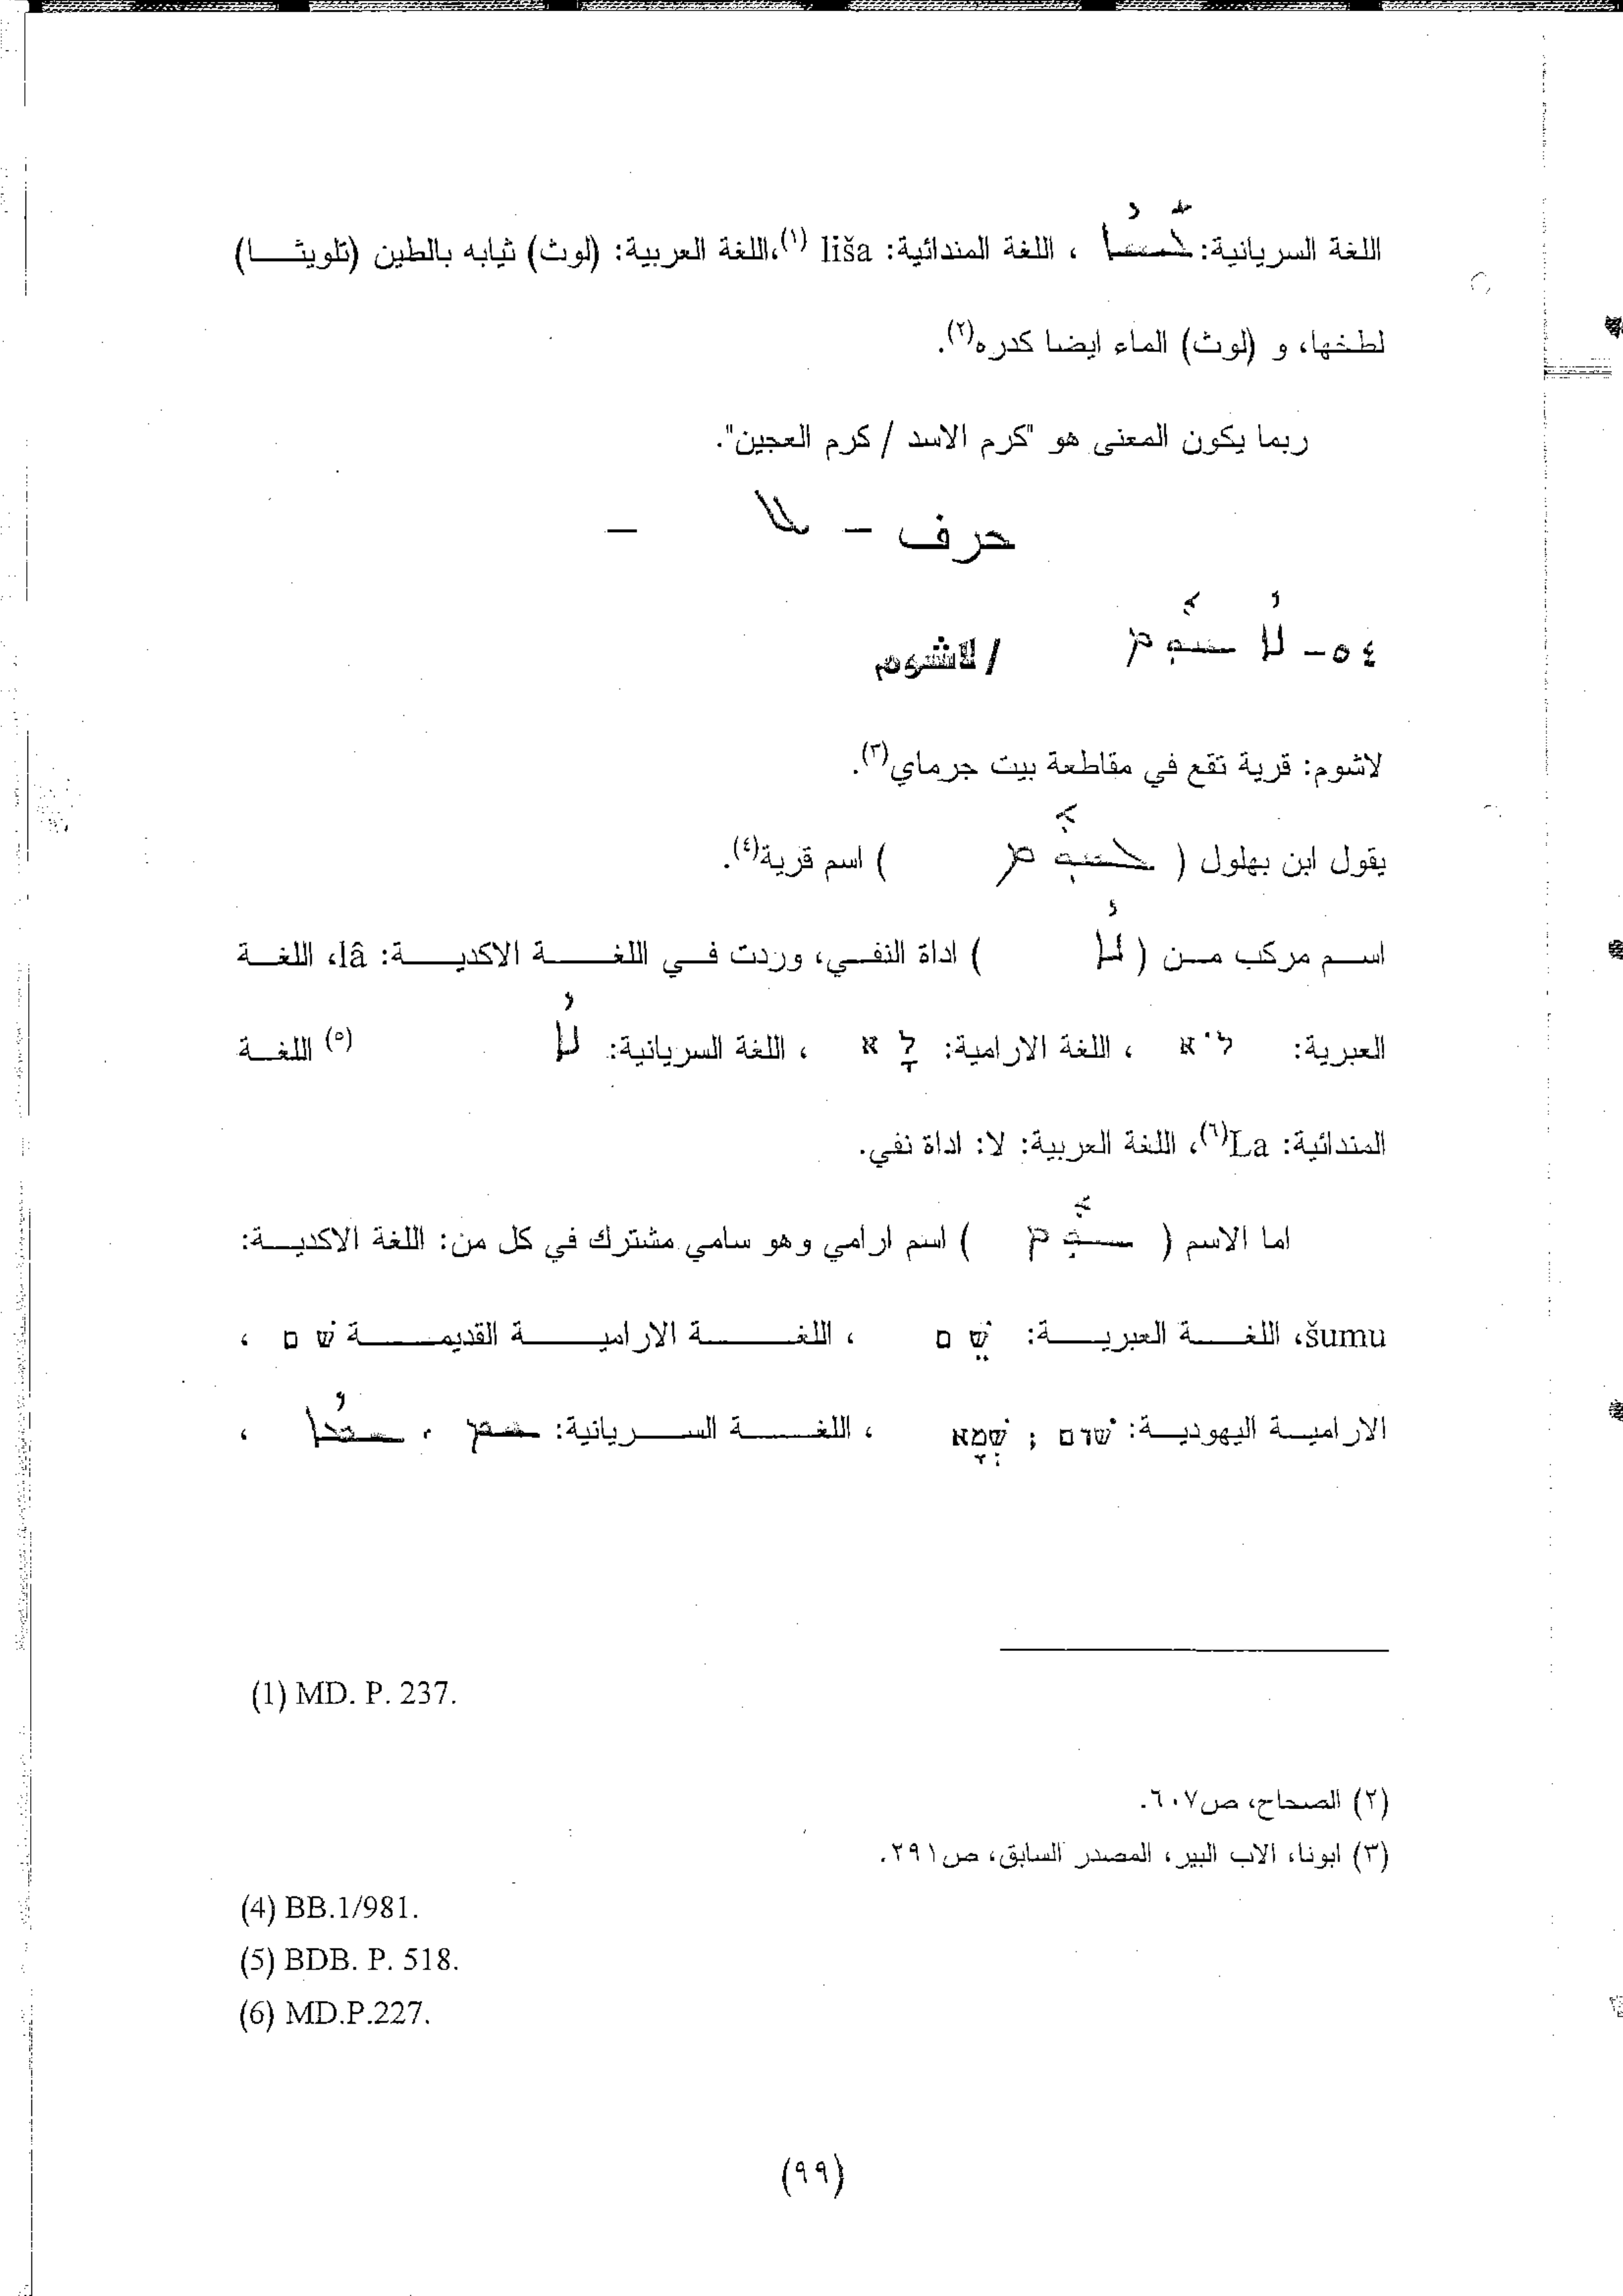 اللغة السريانية: ܠܝܫܐ ، اللغة المندائية: liša (١)،اللغة العربية: (لوث) ثيابه بالطين (تلويثـــا)
لطخها، و (لوث) الماء ايضا كدره(٢).
ربما يكون المعنى هو "كرم الاسد / كرم العجين".
حرف - ܠ -
٥٤- ܠܐ ܫܘܡ / لاشوم
لاشوم: قرية تقع في مقاطعة بيت جرماي(٣).
يقول ابن بهلول ( ܠܫܘܡ ) اسم قرية(٤).
اســم مركب مــن ( ܠܐ ) اداة النفــي، وردت فــي اللغــــة الاكديــــة: lâ، اللغــة
العبرية: לֹא ، اللغة الارامية: לָא ، اللغة السريانية: ܠܐ (٥) اللغــة
المندائية: La(٦)، اللغة العربية: لا: اداة نفي.
اما الاسم ( ܫܘܡ ) اسم ارامي وهو سامي مشترك في كل من: اللغة الاكديــة:
šumu، اللغــــة العبريــــة: שֵׁם ، اللغــــــة الاراميــــــة القديمــــــة שׁם ،
الاراميــة اليهوديــة: שׁום ; שְׁמָא ، اللغــــة الســــريانية: ܫܡ ، ܫܡܐ ،
(1) MD. P. 237.
(٢) الصحاح، ص٦٠٧.
(٣) ابونا، الاب البير، المصدر السابق، ص٢٩١.
(4) BB.1/981.
(5) BDB. P. 518.
(6) MD.P.227.
(٩٩)